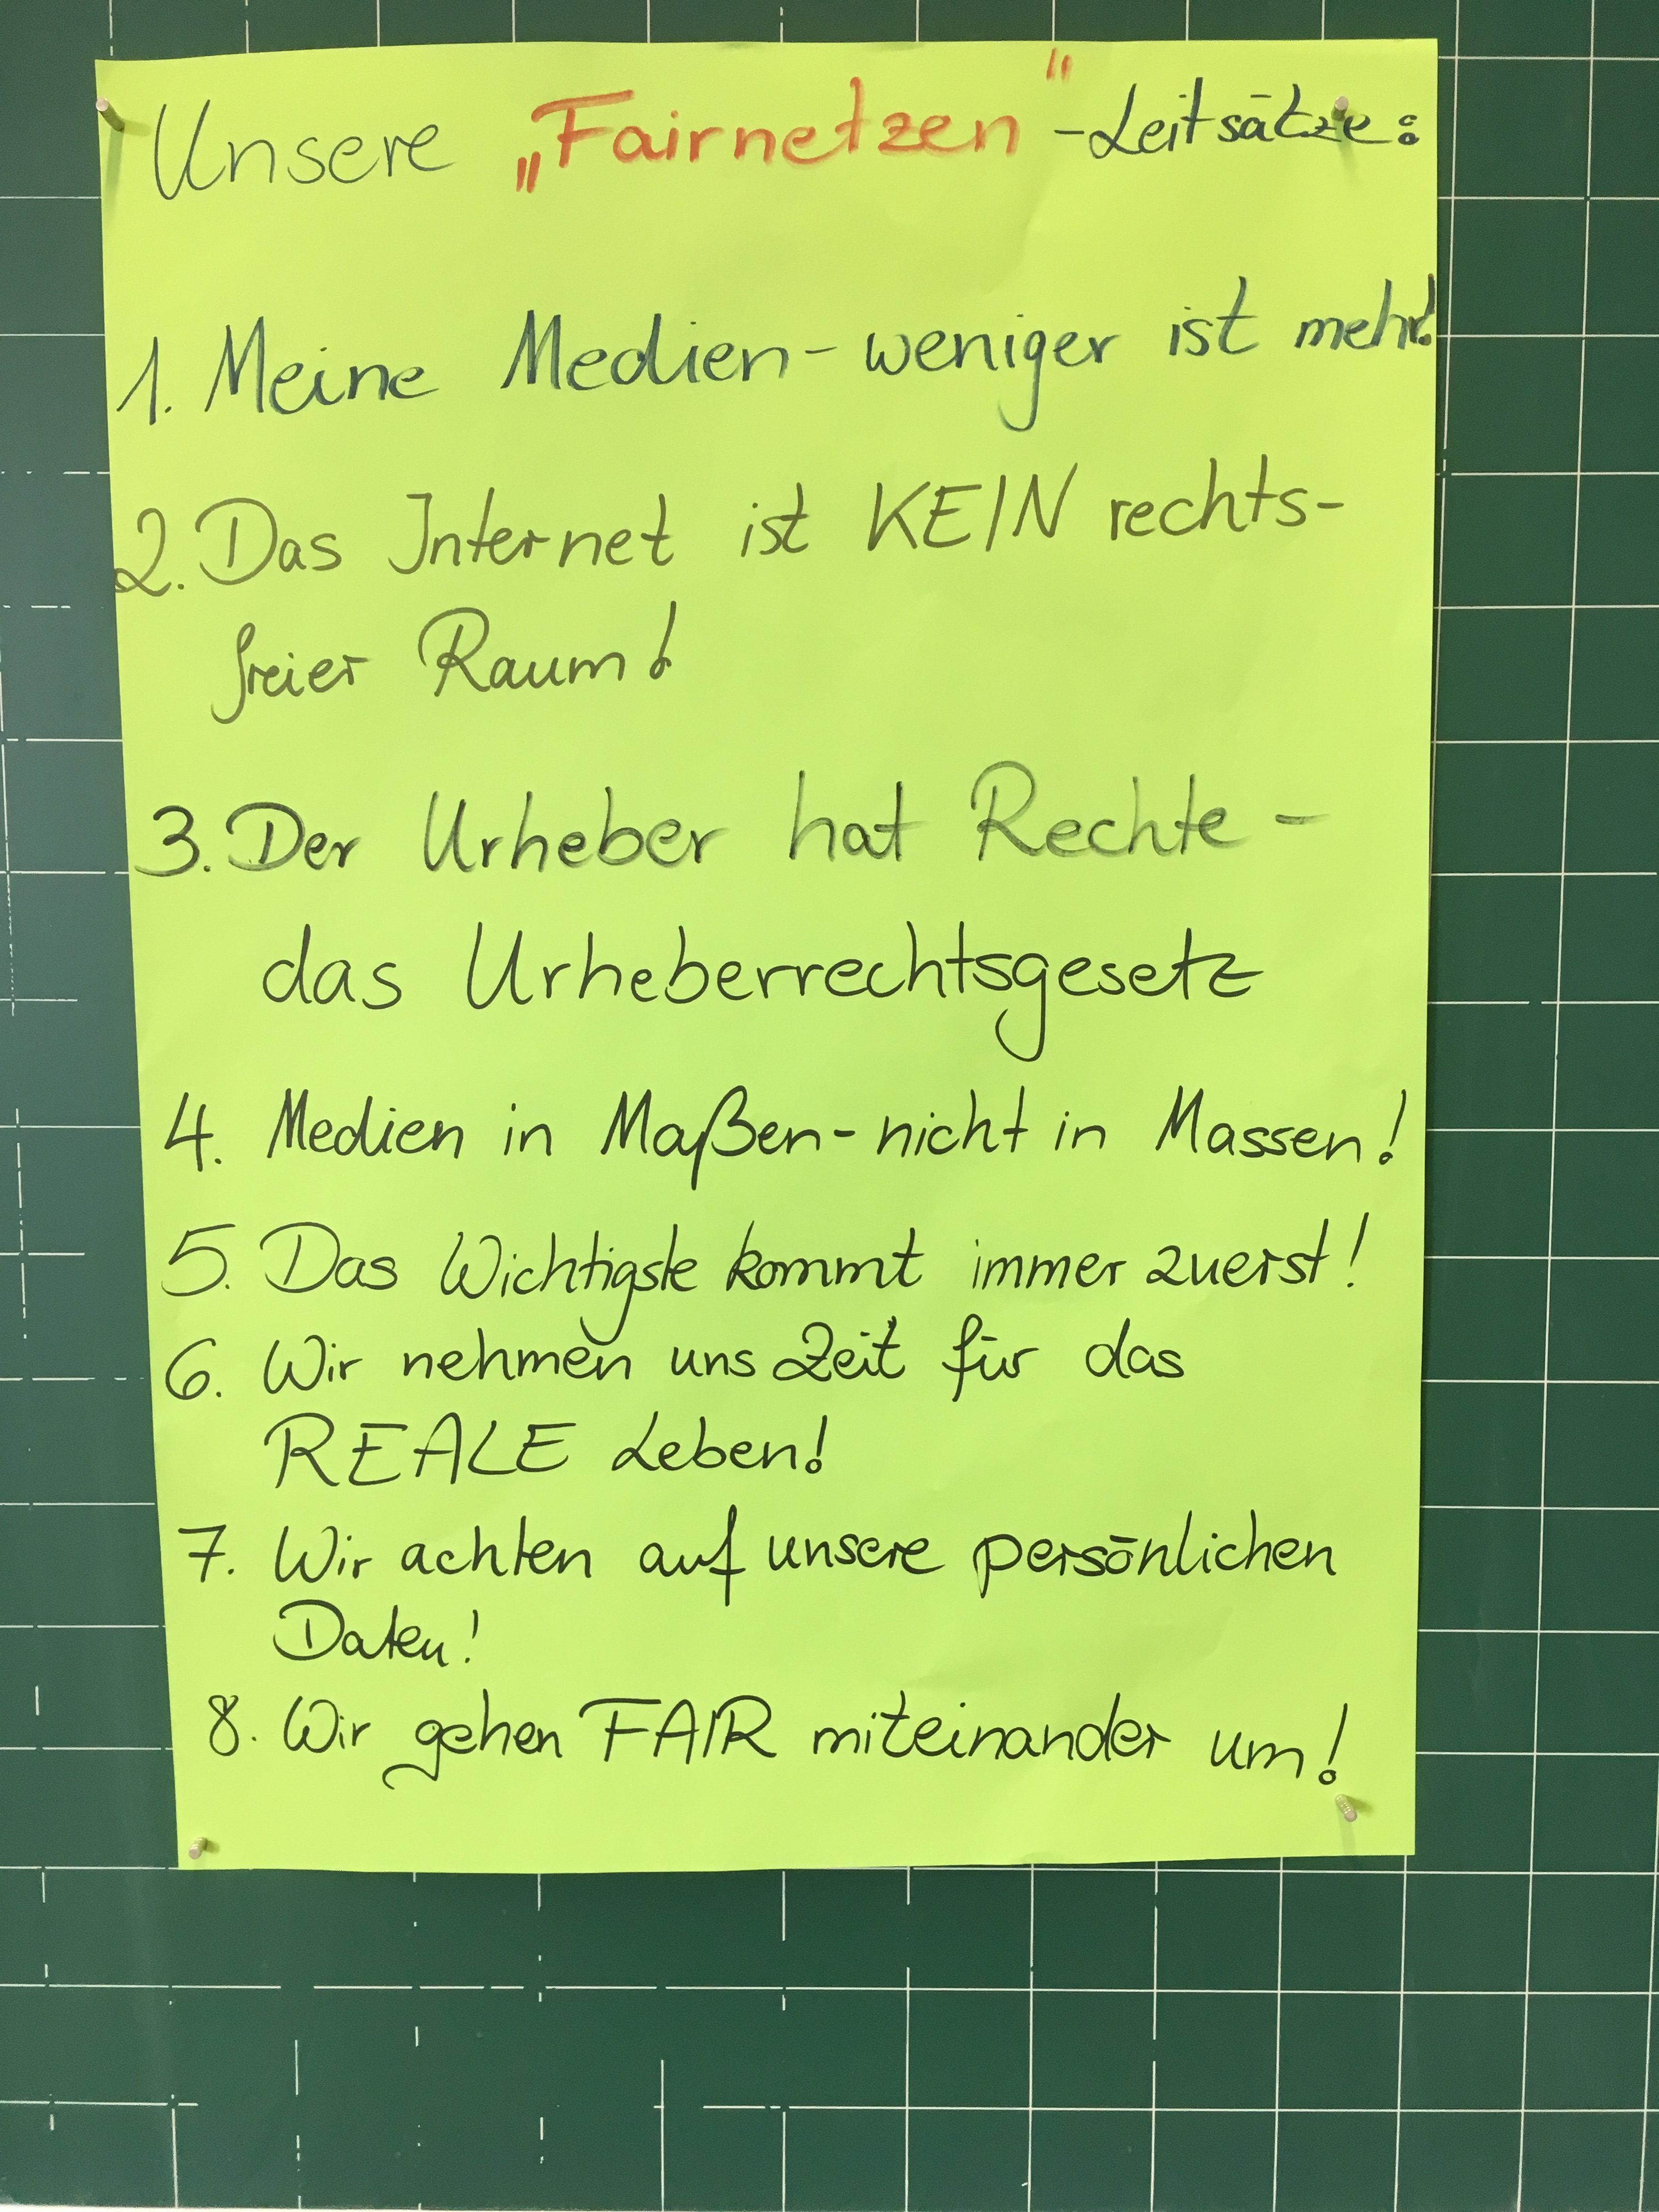 Unsere „Fairnetzen“-Leitsätze:
1. Meine Medien - weniger ist mehr!
2. Das Internet ist KEIN rechts-
freier Raum!
3. Der Urheber hat Rechte -
das Urheberrechtsgesetz
4. Medien in Maßen - nicht in Massen!
5. Das Wichtigste kommt immer zuerst!
6. Wir nehmen uns Zeit für das
REALE Leben!
7. Wir achten auf unsere persönlichen
Daten!
8. Wir gehen FAIR miteinander um!